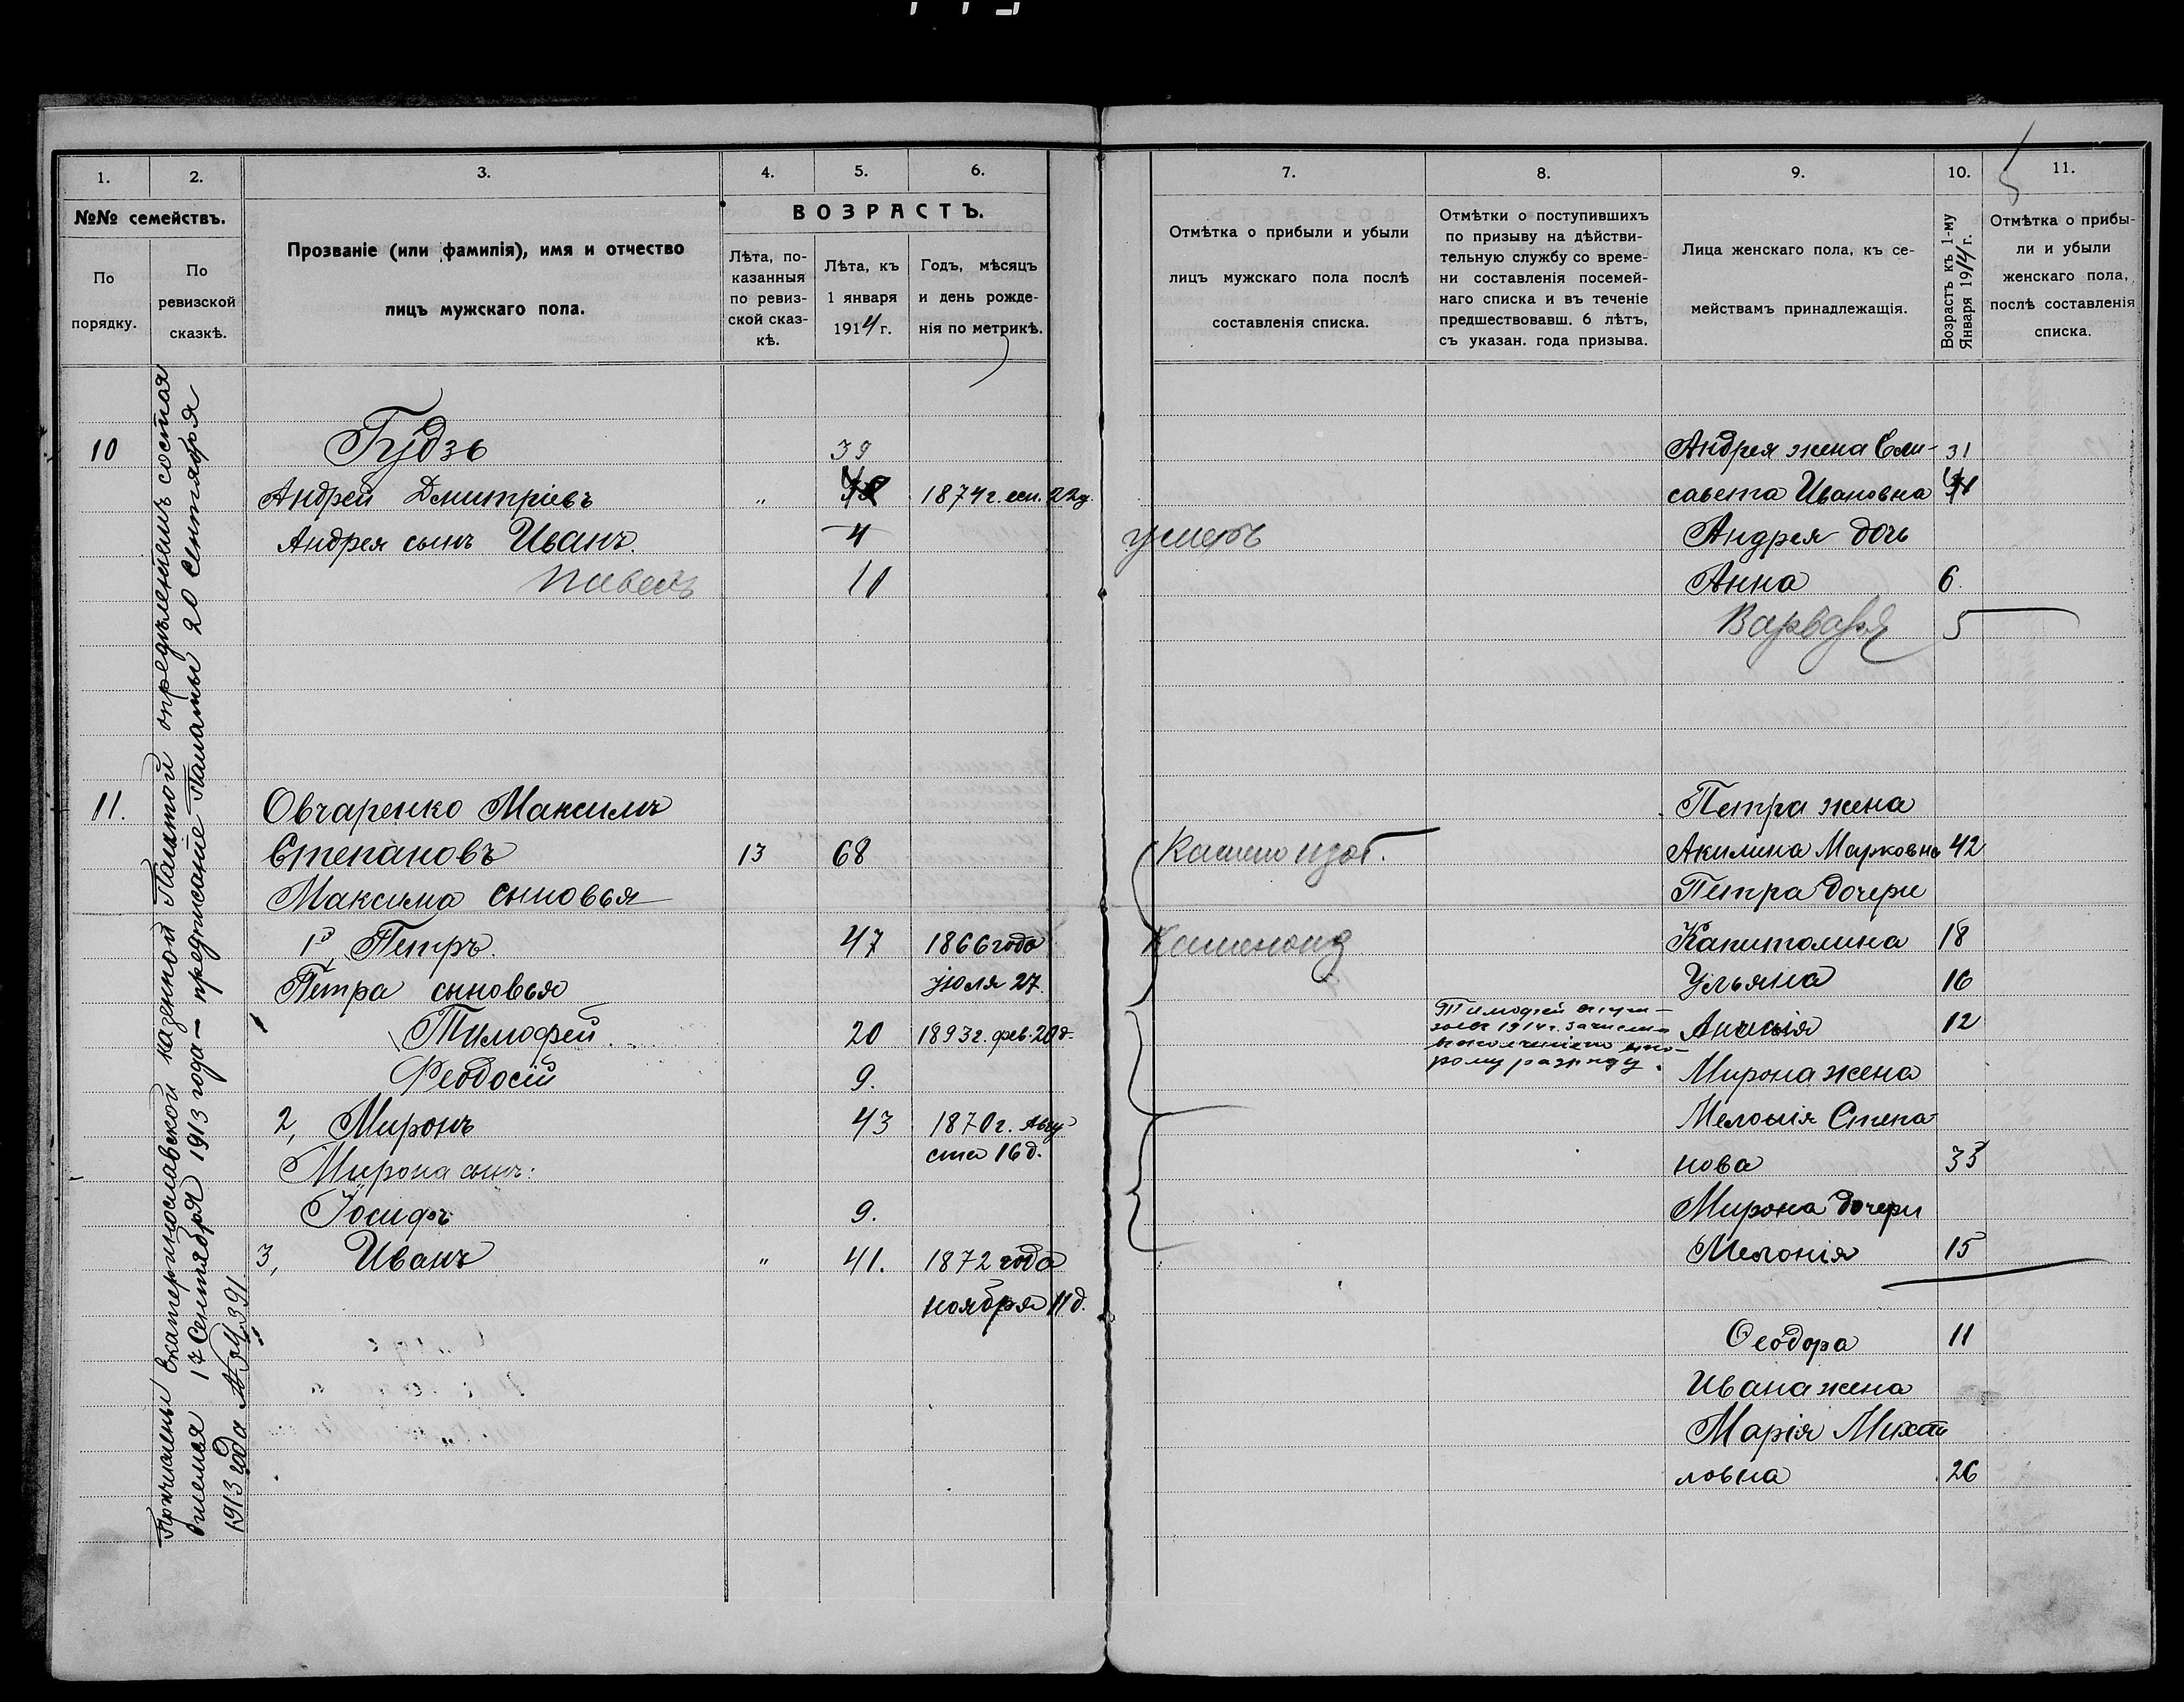 1.
2.
3.
4.
5.
6.
№№ семействъ.
По порядку.
По ревизской сказкѣ.
Прозваніе (или фамилія), имя и отчество
лицъ мужскаго пола.
ВОЗРАСТЪ.
Лѣта, по-
казанныя
по ревиз-
ской сказ-
кѣ.
Лѣта, къ
1 января
1914 г.
Годъ, мѣсяцъ
и день рожде-
нія по метрикѣ.
Причислены Екатеринославской казенной Палатой опредѣленіемъ состоя
вшемся 17 Сентября 1913 года — предписаніе Палаты 20 Сентября
1913 года
10
Гудзь
39
Андрей Дмитріевъ " 1874 г. 22 д.
Андрея сынъ Иванъ. 4
Павелъ 10
11. Овчаренко Максимъ
Степановъ 13 68
Максима сыновья
1, Петръ. 47 1866 года
Петра сыновья Іюля 27.
Тимофей 20 1893 г. фев. 20 д.
Феодосій 9.
2, Миронъ 43 1870 г. Авгу
Мирона сынъ: ста 16 д.
Іосифъ 9.
3, Иванъ " 41. 1872 года
ноября 11 д.
7.
8.
9.
10.
11.
Отмѣтка о прибыли и убыли
лицъ мужскаго пола послѣ
составленія списка.
Отмѣтки о поступившихъ
по призыву на дѣйстви-
тельную службу со време-
ни составленія посемей-
наго списка и въ теченіе
предшествовавш. 6 лѣтъ,
съ указан. года призыва.
Лица женскаго пола, къ се-
мействамъ принадлежащія.
Возрастъ къ 1-му
Января 1914 г.
Отмѣтка о прибы-
ли и убыли
женскаго пола,
послѣ составленія
списка.
Андрея жена Ели- 31
савета Ивановна
умеръ Андрея дочь
Анна 6.
Варвара 5
Петра жена
Акилина Марковна 42
Петра дочери
Капитолина 18
Ульяна 16
Тимофей
1914 г.
рому разряду.
12
Мирона жена
Степа-
нова 33
Мирона дочери
Мелонія 15
Феодора 11
Ивана жена
Марія Михаи
ловна 26